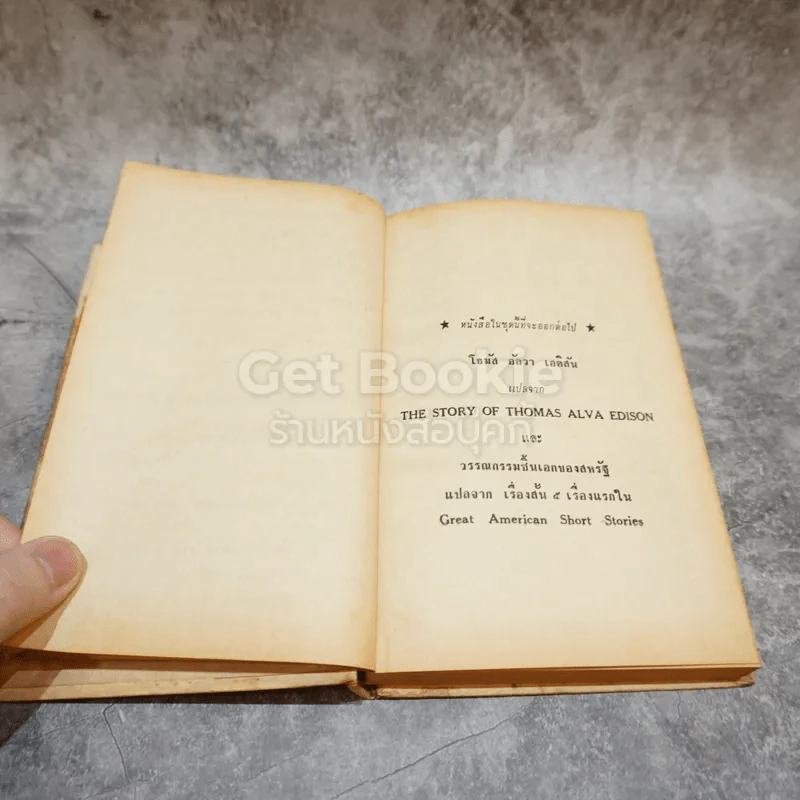 ★ หนังสือในชุดนี้ที่จะออกต่อไป ★
โธมัส อัลวา เอดิสัน
แปลจาก
THE STORY OF THOMAS ALVA EDISON
และ
วรรณกรรมชั้นเอกของสหรัฐ
แปลจาก เรื่องสั้น ๕ เรื่องแรกใน
Great American Short Stories
Get Bookie
ร้านหนังสือบุคกี้